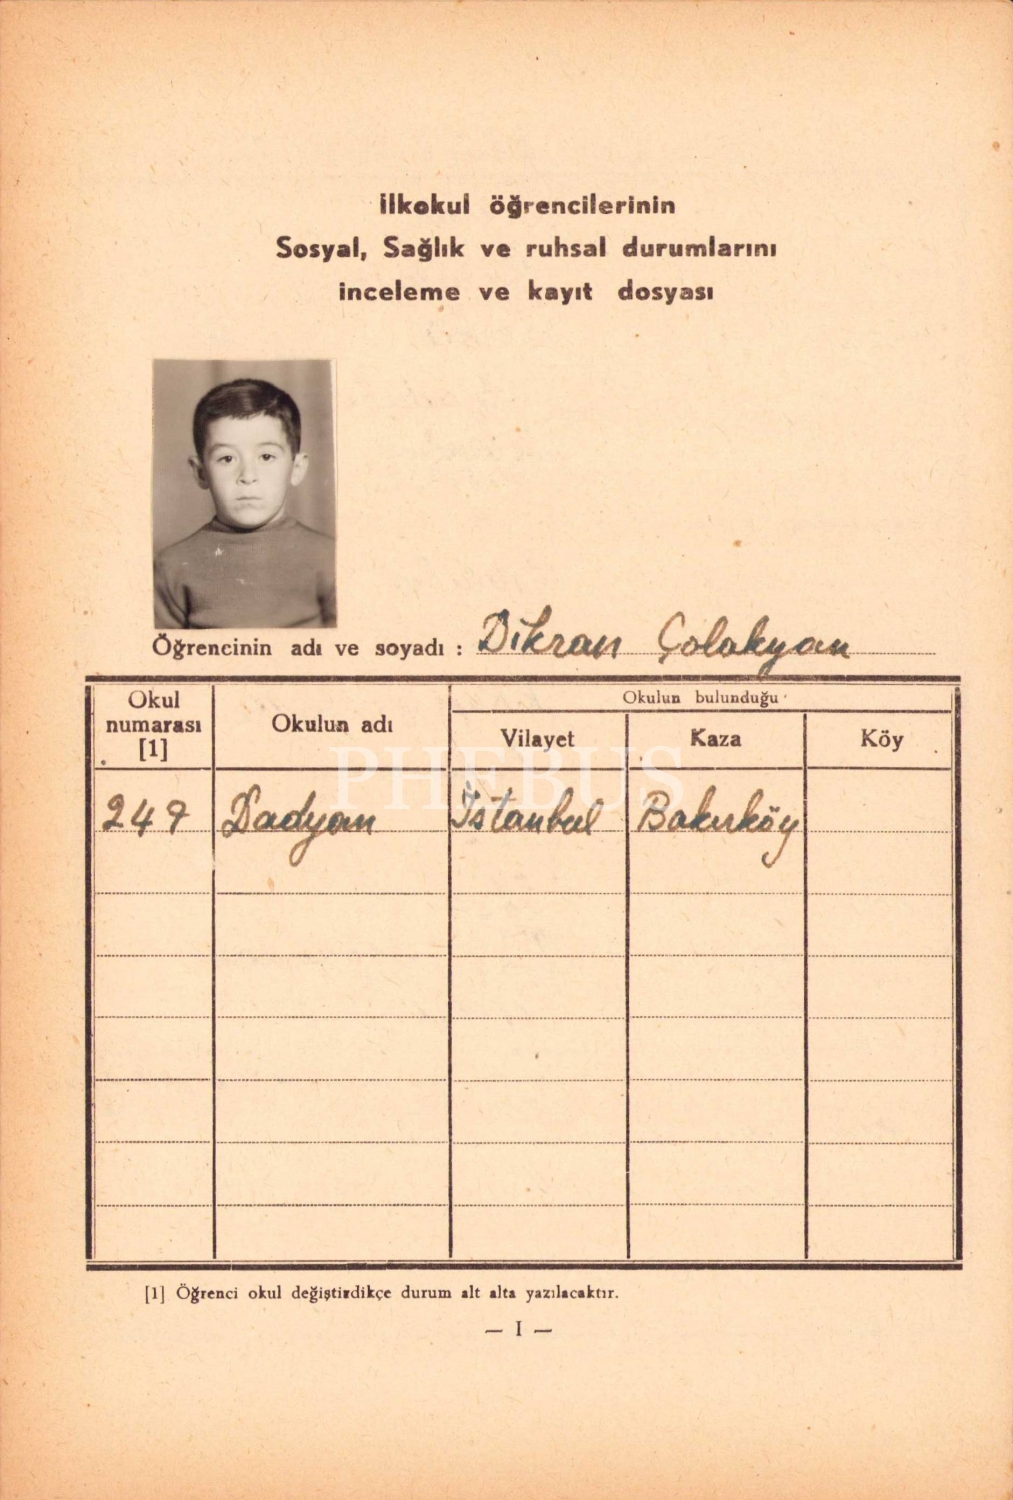 İlkokul öğrencilerinin
Sosyal, Sağlık ve ruhsal durumlarını
inceleme ve kayıt dosyası
Öğrencinin adı ve soyadı : Dikran Çolakyan
Okul numarası [1]
Okulun adı
Okulun bulunduğu
Vilayet Kaza Köy
PHEBUS
247 Dadyan İstanbul Bakırköy
[1] Öğrenci okul değiştirdikçe durum alt alta yazılacaktır.
— I —